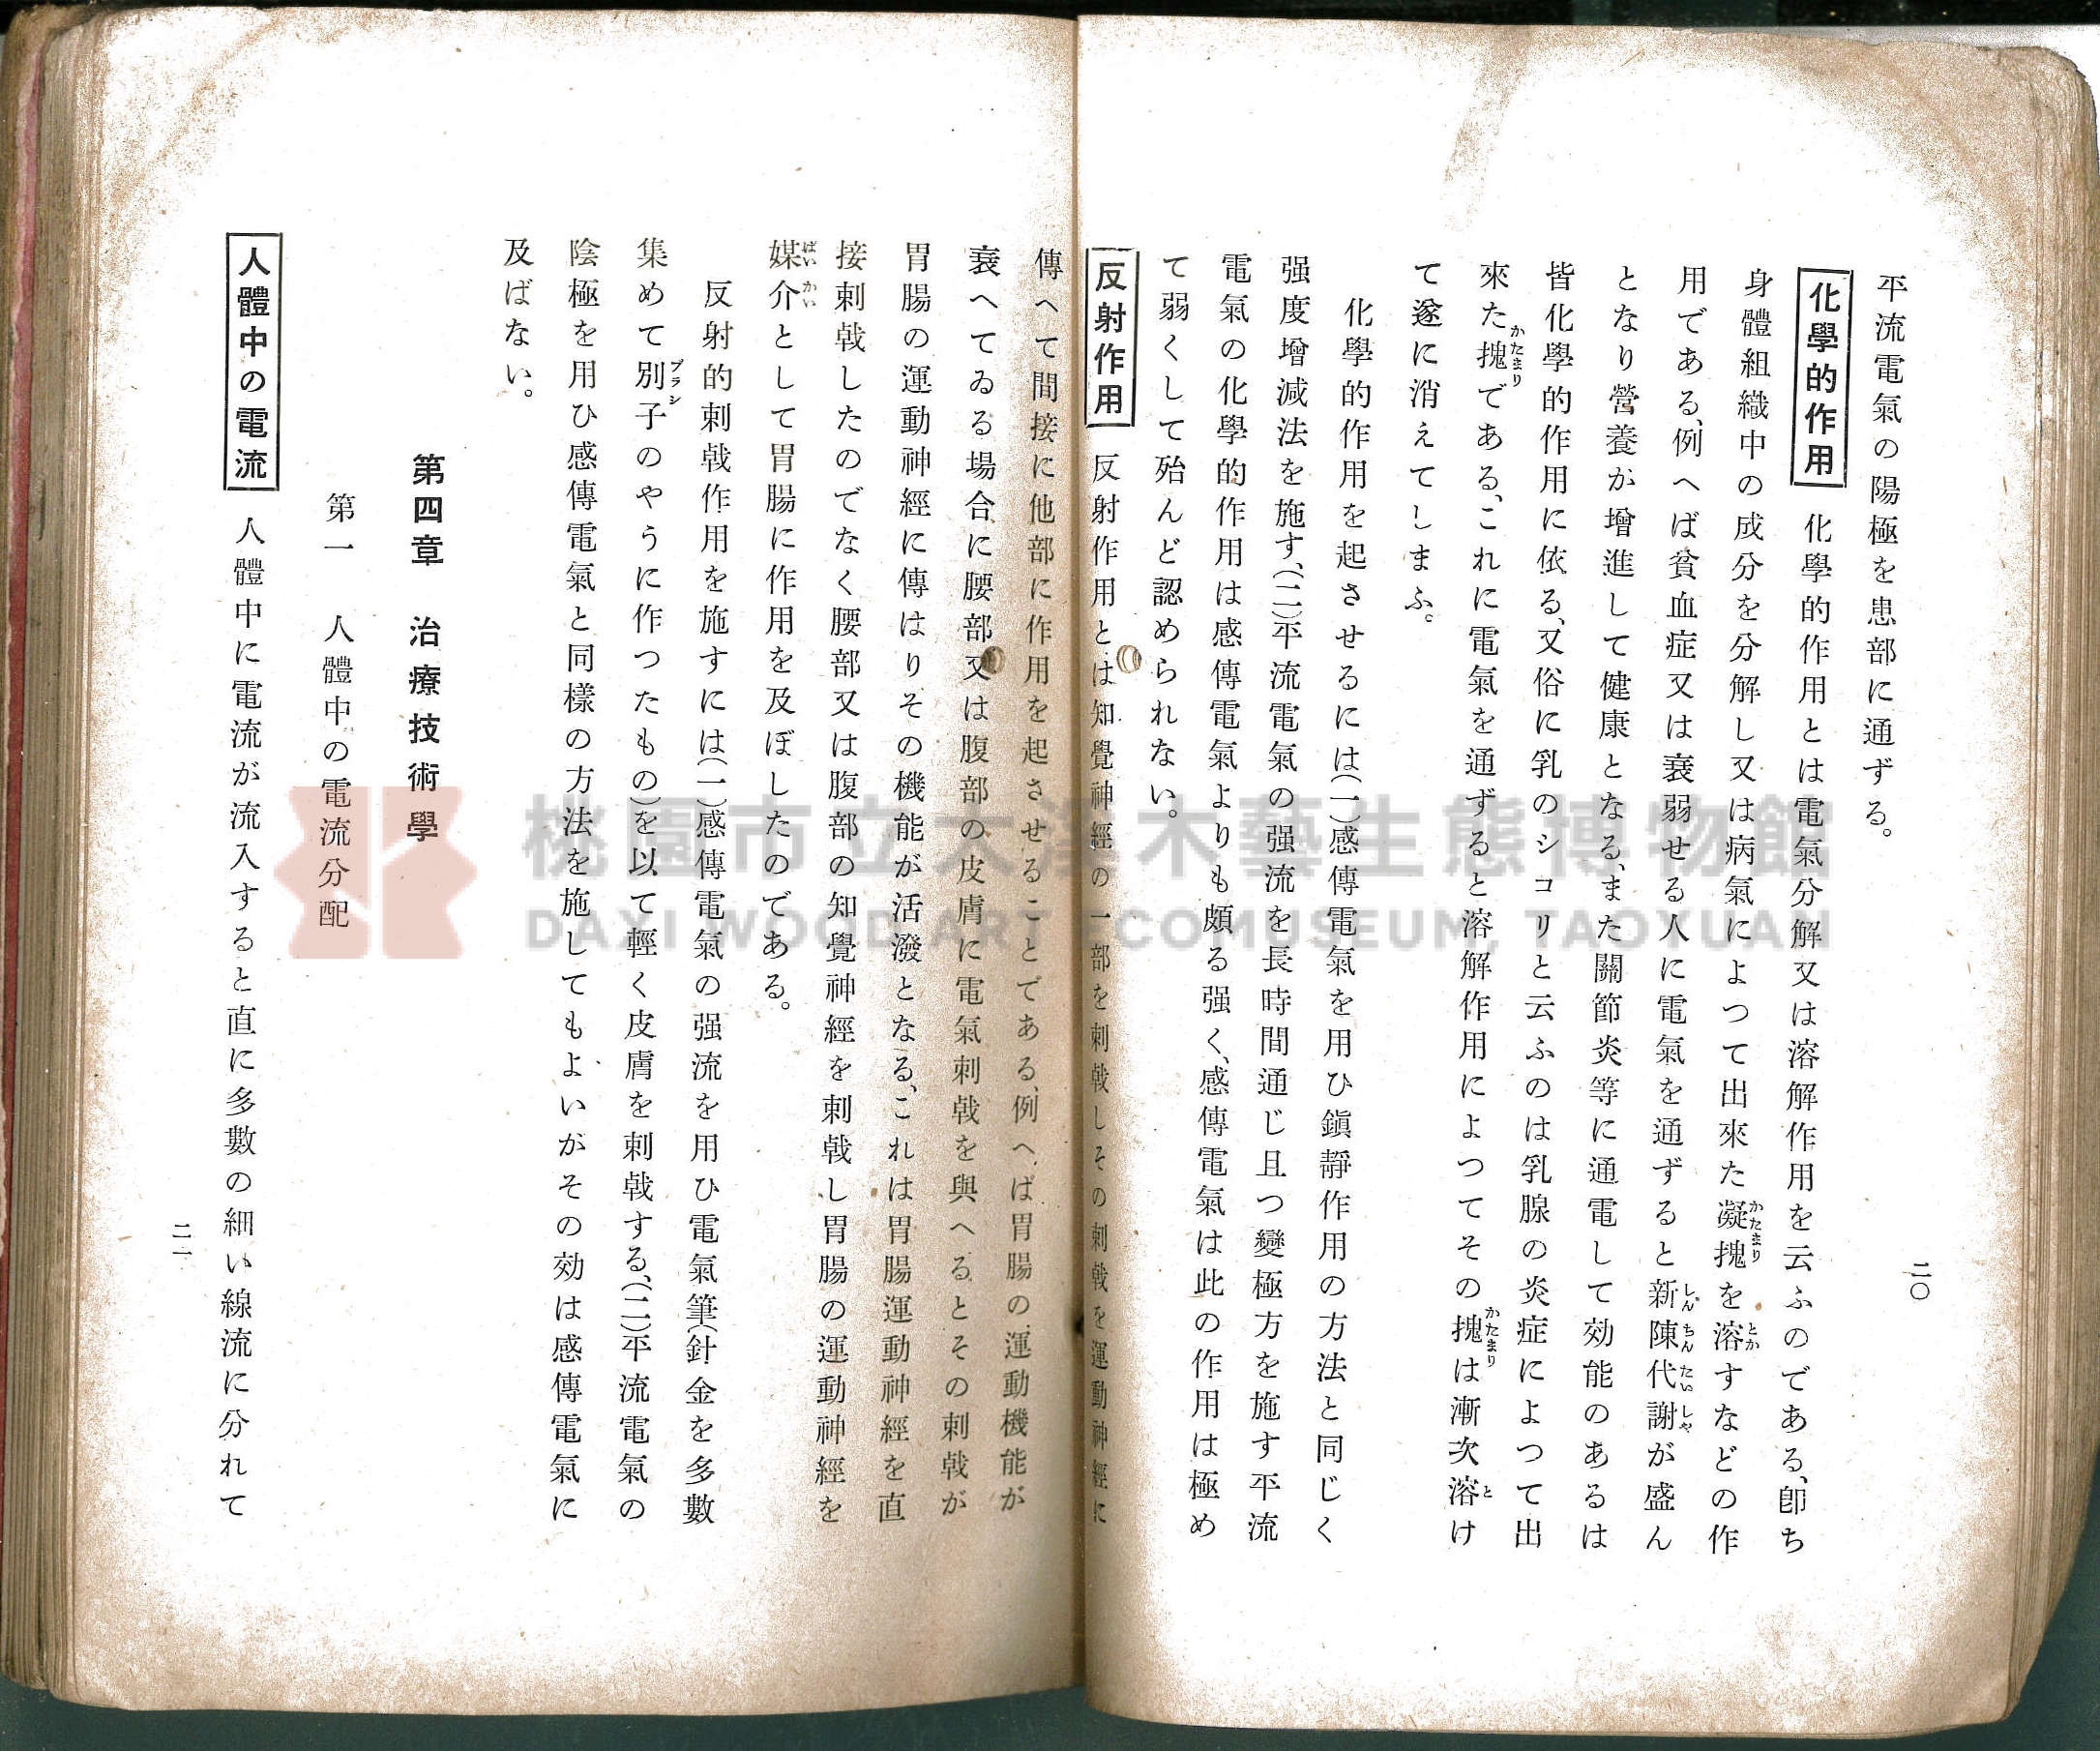 二〇
平流電氣の陽極を患部に通ずる。
化學的作用 化學的作用とは電氣分解又は溶解作用を云ふのである、卽ち
身體組織中の成分を分解し又は病氣によつて出來た凝塊を溶すなどの作
用である、例へば貧血症又は衰弱せる人に電氣を通ずると新陳代謝が盛ん
となり營養が增進して健康となる、また關節炎等に通電して効能のあるは
皆化學的作用に依る、又俗に乳のシコリと云ふのは乳腺の炎症によつて出
來た塊である、これに電氣を通ずると溶解作用によつてその塊は漸次溶け
て遂に消えてしまふ。
化學的作用を起させるには(一)感傳電氣を用ひ鎭靜作用の方法と同じく
强度增減法を施す、(二)平流電氣の强流を長時間通じ且つ變極方を施す平流
電氣の化學的作用は感傳電氣よりも頗る强く、感傳電氣は此の作用は極め
て弱くして殆んど認められない。
反射作用 反射作用とは知覺神經の一部を刺戟しその刺戟を運動神經に
傳へて間接に他部に作用を起させることである、例へば胃腸の運動機能が
衰へてゐる場合に腰部又は腹部の皮膚に電氣刺戟を與へるとその刺戟が
胃腸の運動神經に傳はりその機能が活潑となる、これは胃腸運動神經を直
接刺戟したのでなく腰部又は腹部の知覺神經を刺戟し胃腸の運動神經を
媒介として胃腸に作用を及ぼしたのである。
反射的刺戟作用を施すには(一)感傳電氣の强流を用ひ電氣筆(針金を多數
集めて刷子のやうに作つたもの)を以て輕く皮膚を刺戟する、(二)平流電氣の
陰極を用ひ感傳電氣と同樣の方法を施してもよいがその効は感傳電氣に
及ばない。
第四章 治療技術學
第一 人體中の電流分配
人體中の電流 人體中に電流が流入すると直に多數の細い線流に分れて
二一
桃園市立大溪木藝生態博物館
DAXI WOOD ART ECOMUSEUM, TAOYUAN